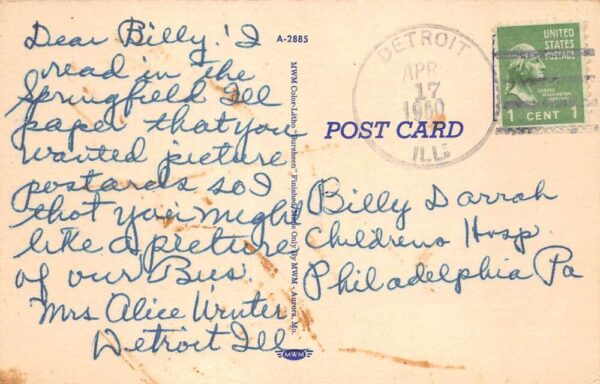 Dear Billy! I
read in the
Springfield Ill
paper that you
wanted picture
postcards so I
thot you might
like a picture
of our Bus.
Mrs Alice Winter
Detroit Ill
A-2885
MWM Color-Litho "Plursheen" Finished Made Only By MWM - Aurora, Mo.
MWM
POST CARD
DETROIT
APR
17
1950
ILL.
UNITED
STATES
POSTAGE
GEORGE
WASHINGTON
1 CENT 1
Billy Darrah
Childrens Hosp.
Philadelphia Pa